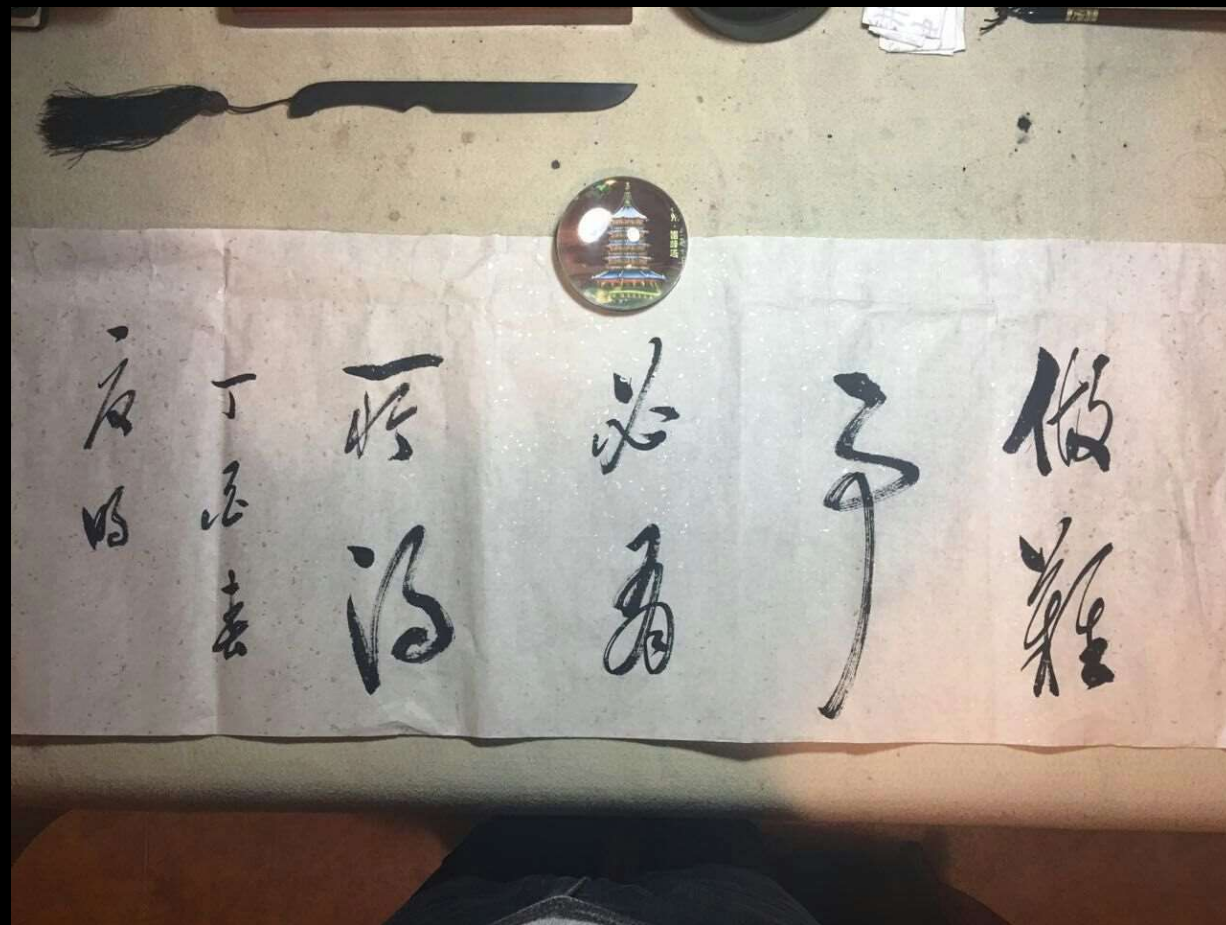 做難
事
必有
所得
丁酉春
雷峰塔